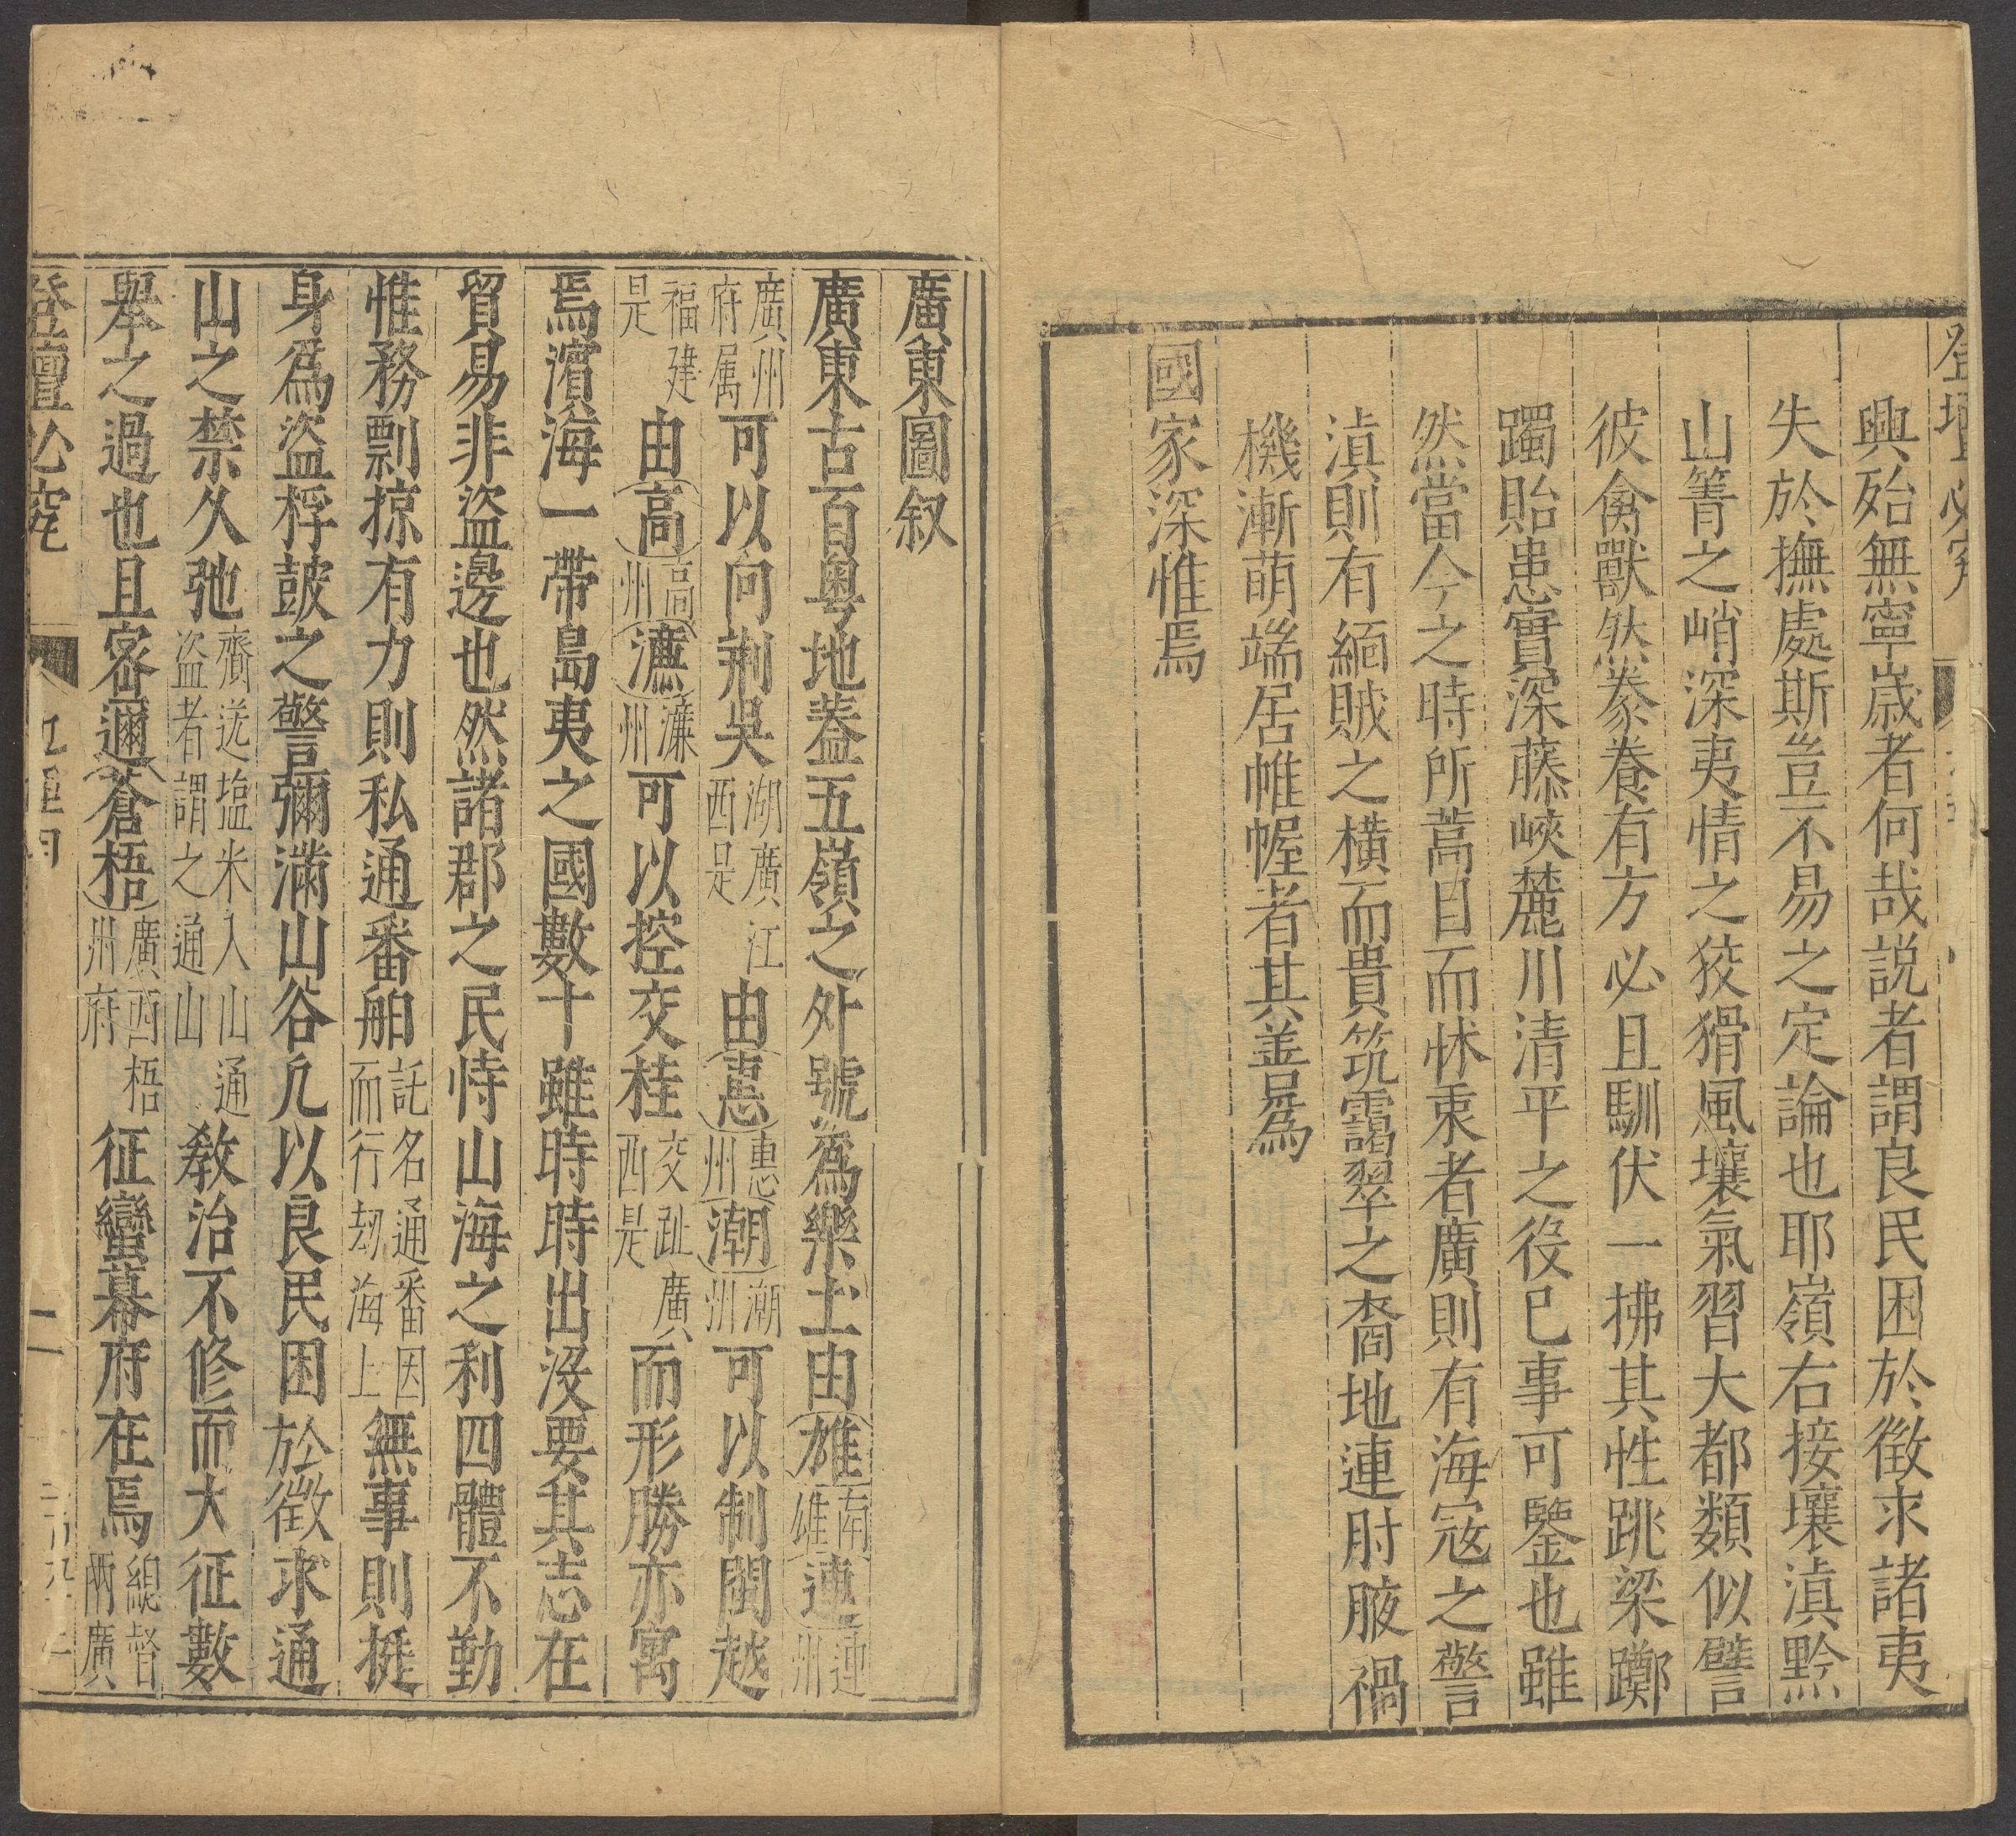 登壇必究
興殆無寧歲者何哉説者謂良民困於徵求諸夷
失於撫處斯豈不易之定論也耶嶺右接壤滇黔
山箐之峭深夷情之狡猾風壤氣習大都類似譬
彼禽獸然豢養有方必且馴伏一拂其性跳梁躑
躅貽患實深藤峽麓川清平之役已事可鑒也雖
然當今之時所蒿目而怵衷者廣則有海寇之警
滇則有緬賊之横而貴筑靄翠之裔地連肘腋禍
機漸萌端居帷幄者其善爲
國家深惟焉
廣東圖叙
廣東古百粤地蓋五嶺之外號爲樂土由雄南雄連連州
廣州府属可以向荆吳湖廣江西是由惠惠州潮潮州可以制閩越
福建是由高高州㢘濂州可以控交桂交趾廣西是而形勝亦寓
焉濵海一帶島夷之國數十雖時時出沒要其志在
貿易非盜邊也然諸郡之民恃山海之利四體不勤
惟務剽掠有力則私通番舶託名通番因而行刼海上無事則挺
身爲盜桴鼓之警彌滿山谷凡以良民困於徵求通
山之禁久弛齎送塩米入山通盜者謂之通山教治不修而大征數
舉之過也且密邇蒼梧廣西梧州府征蠻幕府在焉總督兩廣
登壇必究
二